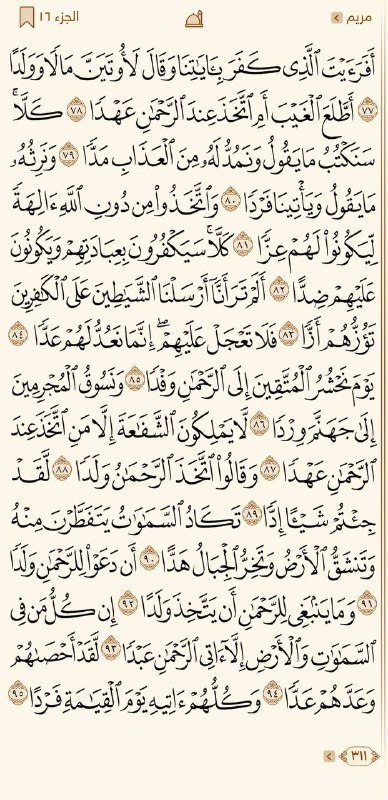 مريم
الجزء ١٦
أَفَرَءَيْتَ ٱلَّذِى كَفَرَ بِـَٔايَـٰتِنَا وَقَالَ لَأُوتَيَنَّ مَالًا وَوَلَدًا
٧٧ أَطَّلَعَ ٱلْغَيْبَ أَمِ ٱتَّخَذَ عِندَ ٱلرَّحْمَـٰنِ عَهْدًا ٧٨ كَلَّا ۚ
سَنَكْتُبُ مَا يَقُولُ وَنَمُدُّ لَهُۥ مِنَ ٱلْعَذَابِ مَدًّا ٧٩ وَنَرِثُهُۥ
مَا يَقُولُ وَيَأْتِينَا فَرْدًا ٨٠ وَٱتَّخَذُوا۟ مِن دُونِ ٱللَّهِ ءَالِهَةً
لِّيَكُونُوا۟ لَهُمْ عِزًّا ٨١ كَلَّا ۚ سَيَكْفُرُونَ بِعِبَادَتِهِمْ وَيَكُونُونَ
عَلَيْهِمْ ضِدًّا ٨٢ أَلَمْ تَرَ أَنَّآ أَرْسَلْنَا ٱلشَّيَـٰطِينَ عَلَى ٱلْكَـٰفِرِينَ
تَؤُزُّهُمْ أَزًّا ٨٣ فَلَا تَعْجَلْ عَلَيْهِمْ ۖ إِنَّمَا نَعُدُّ لَهُمْ عَدًّا ٨٤
يَوْمَ نَحْشُرُ ٱلْمُتَّقِينَ إِلَى ٱلرَّحْمَـٰنِ وَفْدًا ٨٥ وَنَسُوقُ ٱلْمُجْرِمِينَ
إِلَىٰ جَهَنَّمَ وِرْدًا ٨٦ لَّا يَمْلِكُونَ ٱلشَّفَـٰعَةَ إِلَّا مَنِ ٱتَّخَذَ عِندَ
ٱلرَّحْمَـٰنِ عَهْدًا ٨٧ وَقَالُوا۟ ٱتَّخَذَ ٱلرَّحْمَـٰنُ وَلَدًا ٨٨ لَّقَدْ
جِئْتُمْ شَيْـًٔا إِدًّا ٨٩ تَكَادُ ٱلسَّمَـٰوَٰتُ يَتَفَطَّرْنَ مِنْهُ
وَتَنشَقُّ ٱلْأَرْضُ وَتَخِرُّ ٱلْجِبَالُ هَدًّا ٩٠ أَن دَعَوْا۟ لِلرَّحْمَـٰنِ وَلَدًا
٩١ وَمَا يَنۢبَغِى لِلرَّحْمَـٰنِ أَن يَتَّخِذَ وَلَدًا ٩٢ إِن كُلُّ مَن فِى
ٱلسَّمَـٰوَٰتِ وَٱلْأَرْضِ إِلَّآ ءَاتِى ٱلرَّحْمَـٰنِ عَبْدًا ٩٣ لَّقَدْ أَحْصَىٰهُمْ
وَعَدَّهُمْ عَدًّا ٩٤ وَكُلُّهُمْ ءَاتِيهِ يَوْمَ ٱلْقِيَـٰمَةِ فَرْدًا ٩٥
٣١١